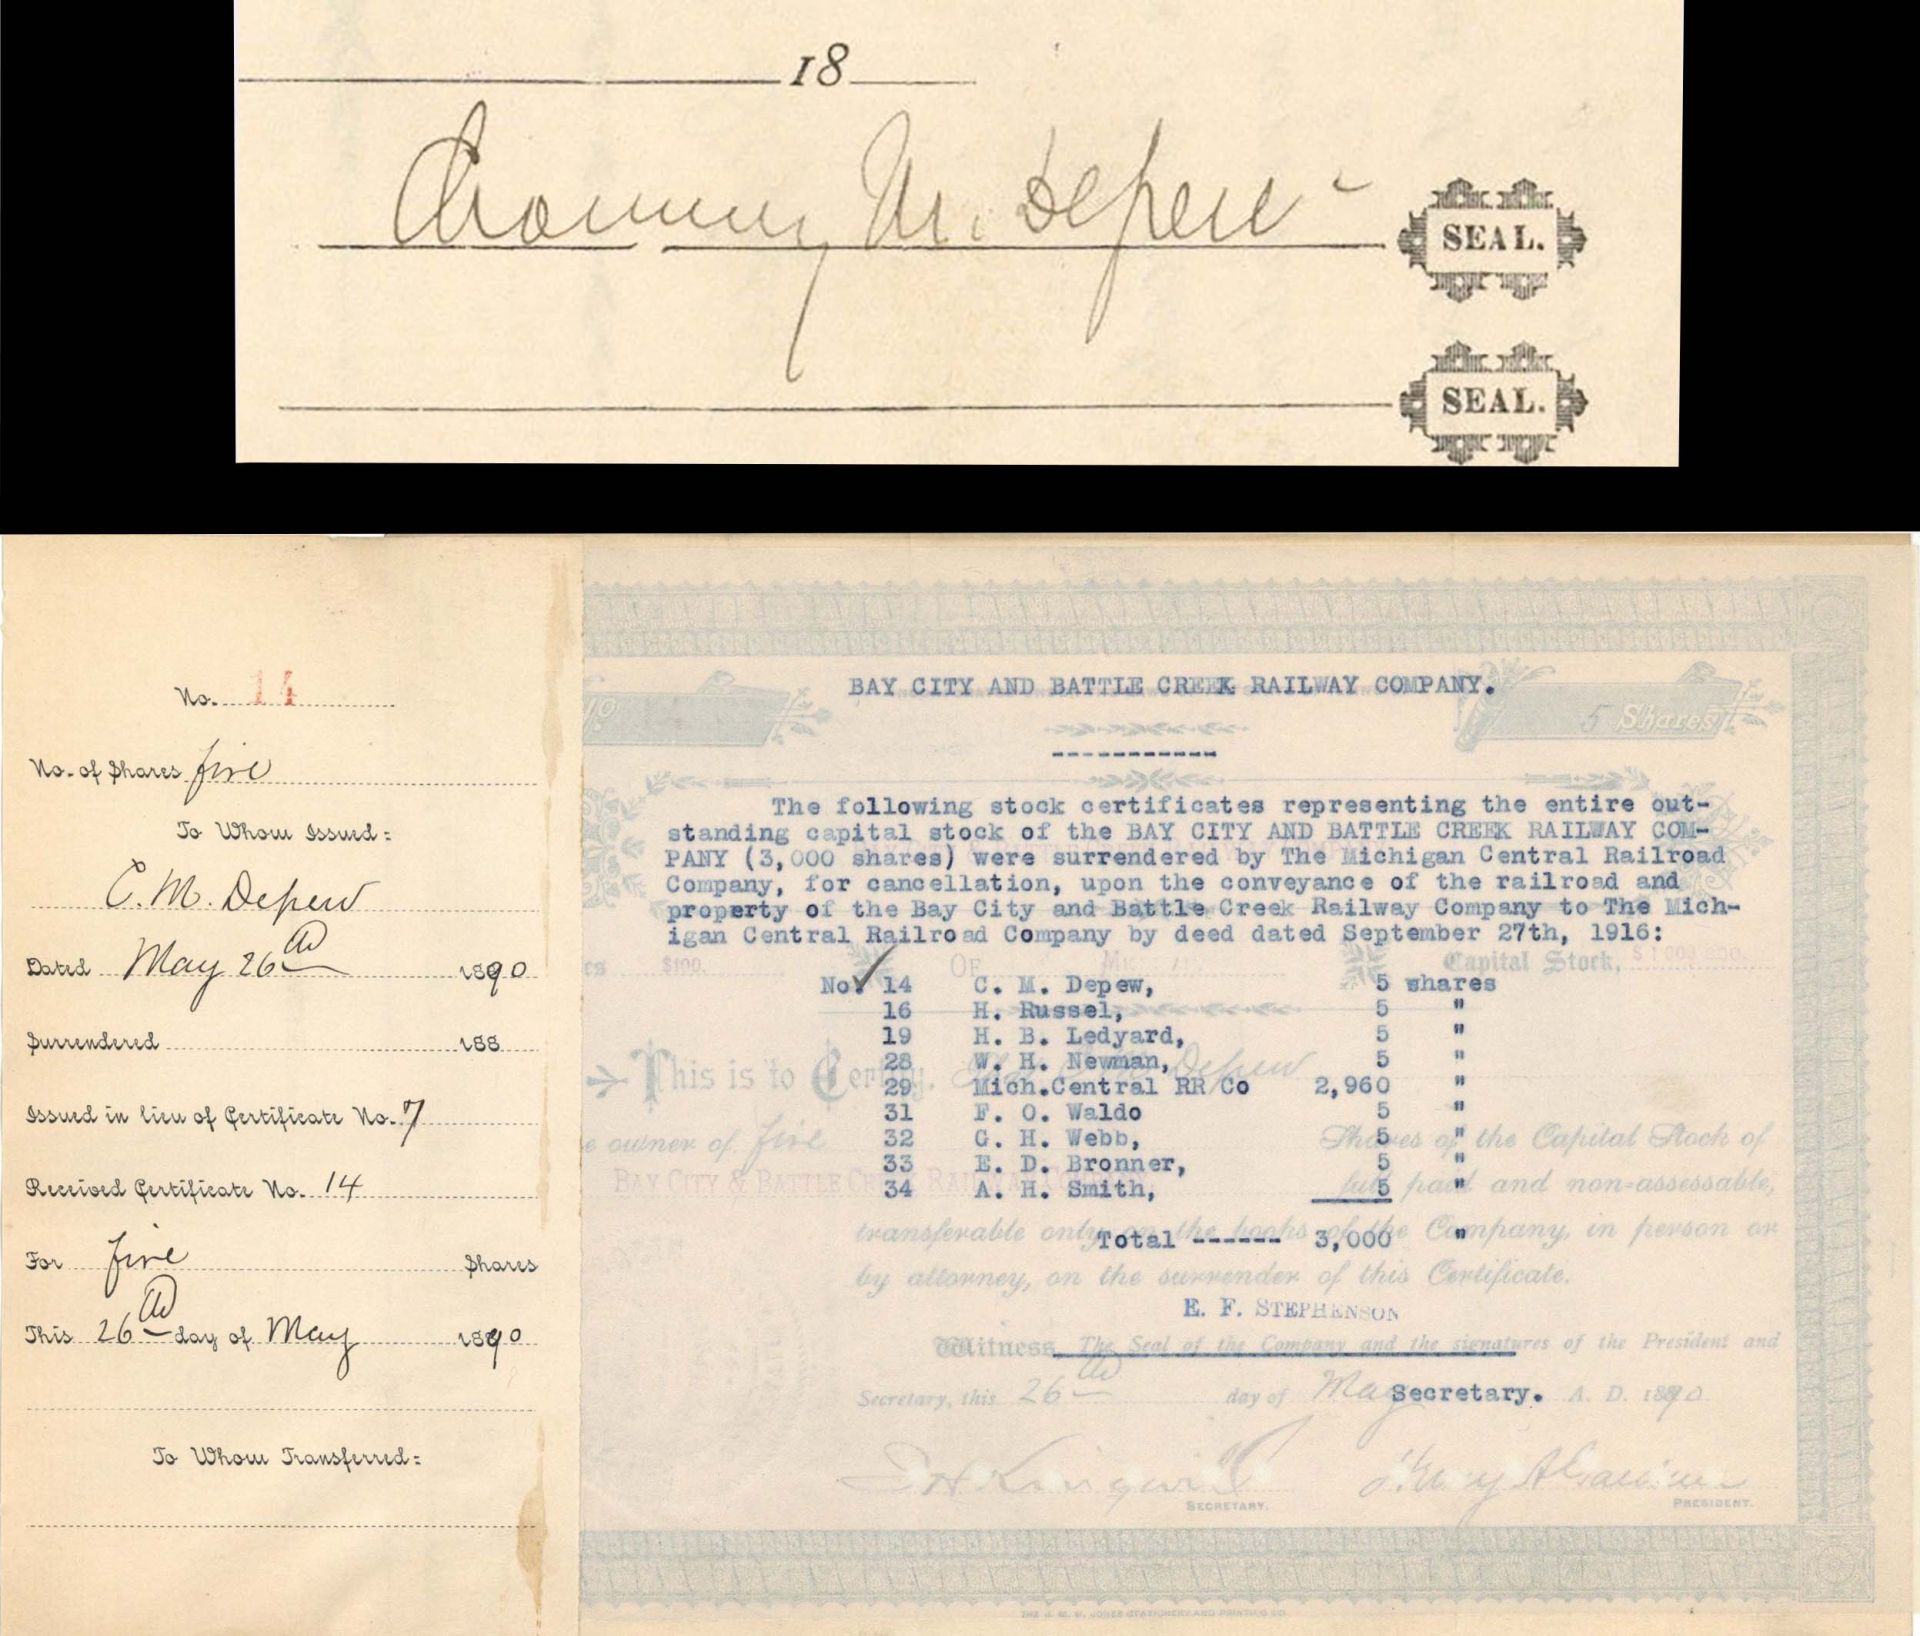 18
Chauncey M. Depew
SEAL.
SEAL.
No. 14
No. of Shares five
To Whom Issued:
C. M. Depew
Dated May 26th 1890
Surrendered 188
Issued in lieu of Certificate No. 7
Received Certificate No. 14
For five Shares
This 26th day of May 1890
To Whom Transferred:
5 Shares
BAY CITY AND BATTLE CREEK RAILWAY COMPANY.
-----------
The following stock certificates representing the entire out-
standing capital stock of the BAY CITY AND BATTLE CREEK RAILWAY COM-
PANY (3,000 shares) were surrendered by The Michigan Central Railroad
Company, for cancellation, upon the conveyance of the railroad and
property of the Bay City and Battle Creek Railway Company to The Mich-
igan Central Railroad Company by deed dated September 27th, 1916:
$100. OF Capital Stock, $1,000,000.
No. 14 C. M. Depew, 5 shares
16 H. Russel, 5 "
19 H. B. Ledyard, 5 "
28 W. H. Newman, 5 "
This is to Certify, Depew
29 Mich.Central RR Co 2,960 "
31 F. O. Waldo 5 "
32 G. H. Webb, 5 "
owner of five Shares of the Capital Stock of
33 E. D. Bronner, 5 "
34 A. H. Smith, 5 "
BAY CITY & BATTLE CREEK RAILWAY full paid and non-assessable,
transferable only on the books of the Company, in person or
Total ------ 3,000 "
by attorney, on the surrender of this Certificate.
E. F. STEPHENSON
Witness The Seal of the Company and the signatures of the President and
Secretary, this 26th day of May A. D. 1890
Secretary.
SECRETARY.
PRESIDENT.
THE J. M. W. JONES STATIONERY AND PRINTING CO.